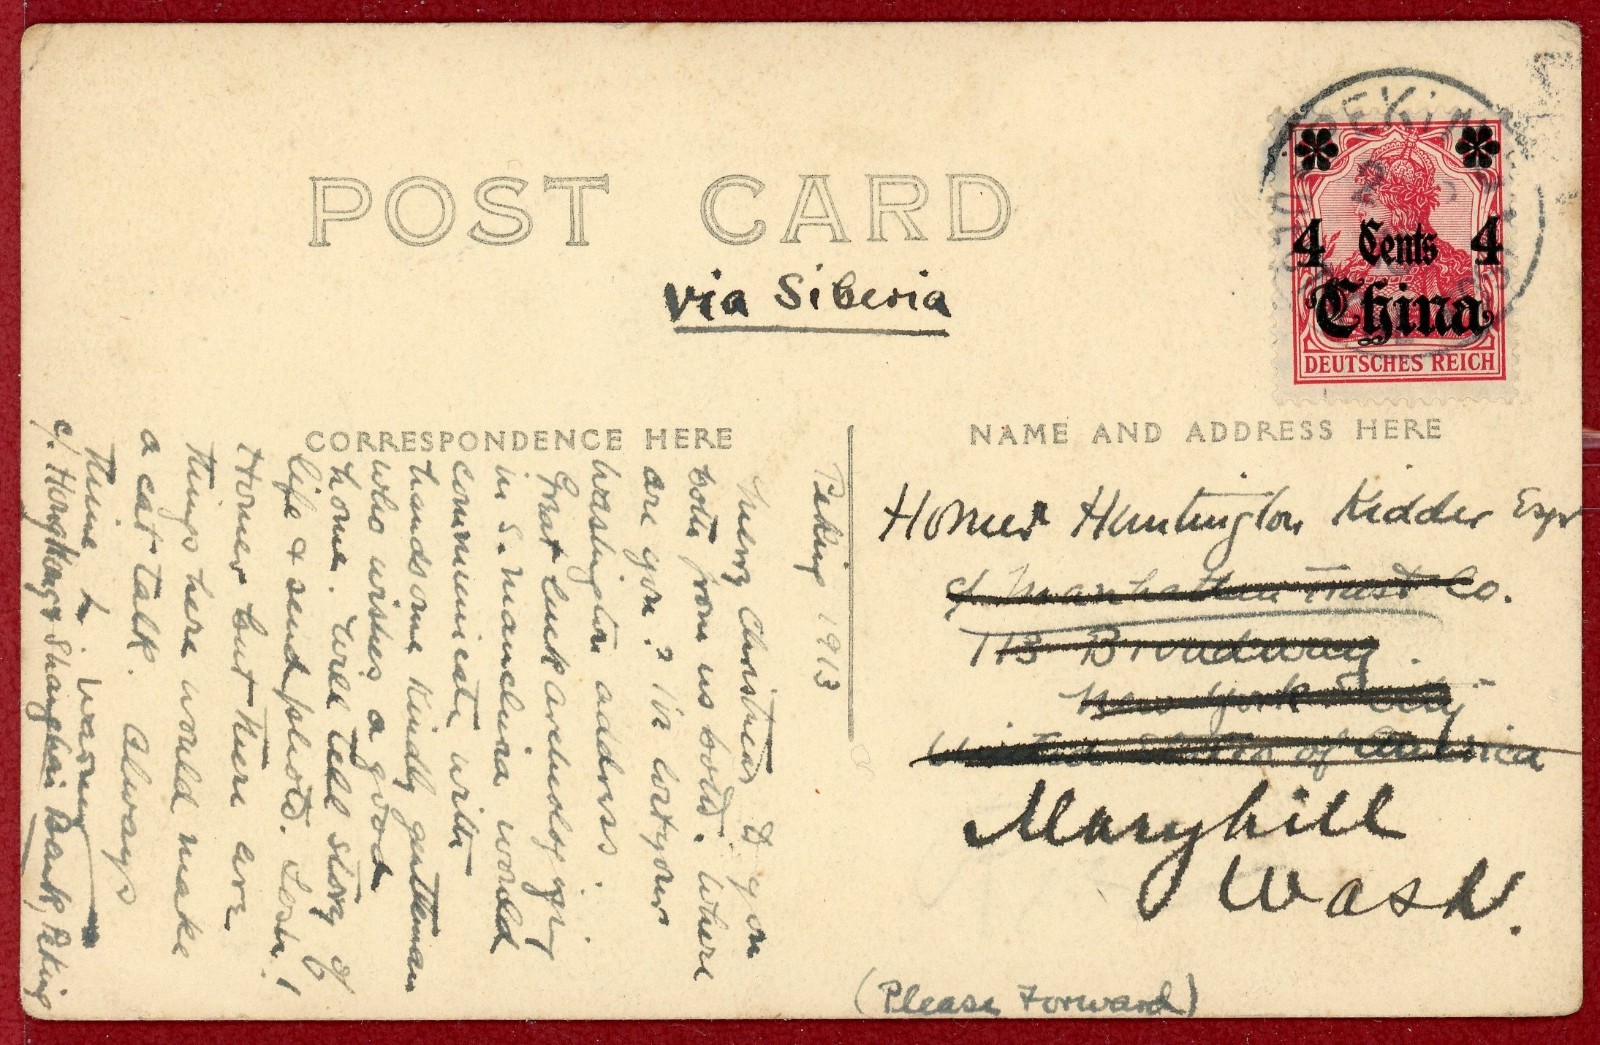 POST CARD
via Siberia
4 Cents 4
China
DEUTSCHES REICH
CORRESPONDENCE HERE
NAME AND ADDRESS HERE
Peking 1913
Merry Christmas to you
both from us both. Where
are you? I've lost your
Washington address.
Great luck
in S. Manchuria would
communicate with
handsome kindly gentleman
who wishes a good
home. Will tell story of
life & send photo.
Homer but there are
things here would make
a cat talk. Always
thine L. Warner
c/. Hongkong & Shanghai Bank, Peking
Homer Huntington Kidder Esqr
c/. Manhattan Trust Co.
113 Broadway
New York City
United States of America
Maryhill
Wash.
(Please Forward)